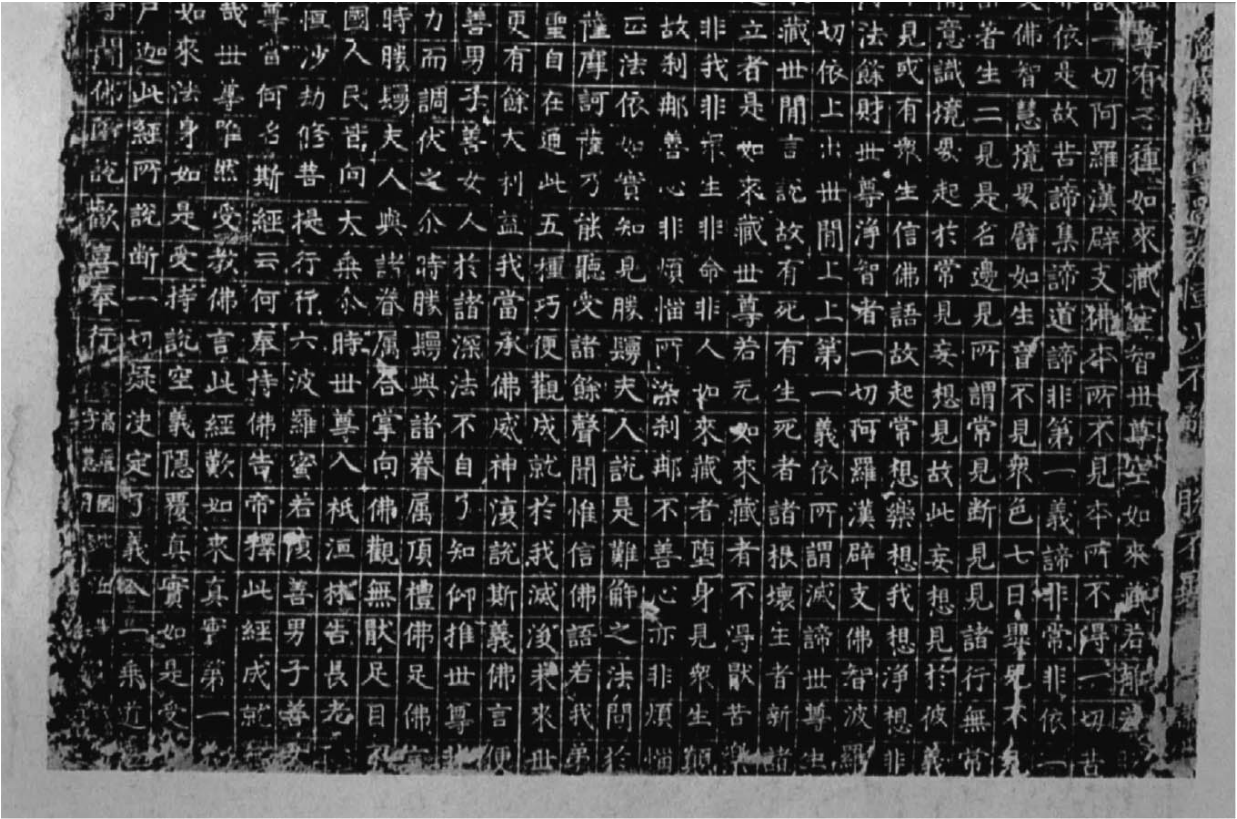 世尊過於恒沙不離脱不異
尊有二種如來藏空智世尊空如來藏若離
一切阿羅漢辟支佛本所不見本所不得一切苦
依是故苦諦集諦道諦非第一義諦非常非依一
佛智慧境界辟如生盲不見衆色七日嬰兒不見
著生二見是名邊見所謂常見断見見諸行無常
意識境界起於常見妄想見故此妄想見於彼義
見或有衆生信佛語故起常想樂想我想淨想非
法餘財世尊淨智者一切阿羅漢辟支佛智波羅
切依上出世閒上上第一義依所謂滅諦世尊生
藏世閒言説故有死有生死者諸根壞生者新諸
立者是如來藏世尊若无如來藏者不得猒苦樂
非我非衆生非命非人如來藏者墮身見衆生顛
故刹那善心非煩惱所染刹那不善心亦非煩惱
正法依如實知見勝鬘夫人說是難解之法問於
薩摩訶薩乃能聽受諸餘聲聞惟信佛語若我弟
聖自在通此五種巧便觀成就於我滅後來世
更有餘大利益我當承佛威神復說斯義佛言便
善男子善女人於諸深法不自了知仰推世尊非
力而調伏之尒時勝鬘與諸眷属頂禮佛足佛
時勝鬘夫人與諸眷属合掌向佛觀無猒足目
國人民皆向大乘尒時世尊入祇洹林告長老
恒沙劫修菩提行行六波羅蜜若復善男子善
尊當何名斯經云何奉持佛告帝釋此經成就
哉世尊唯然受教佛言此經歎如來真實第一
如來法身如是受持說空義隱覆真實如是受
尸迦此經所說断一切疑决定了義入一乘道
等聞佛所說歡喜奉行